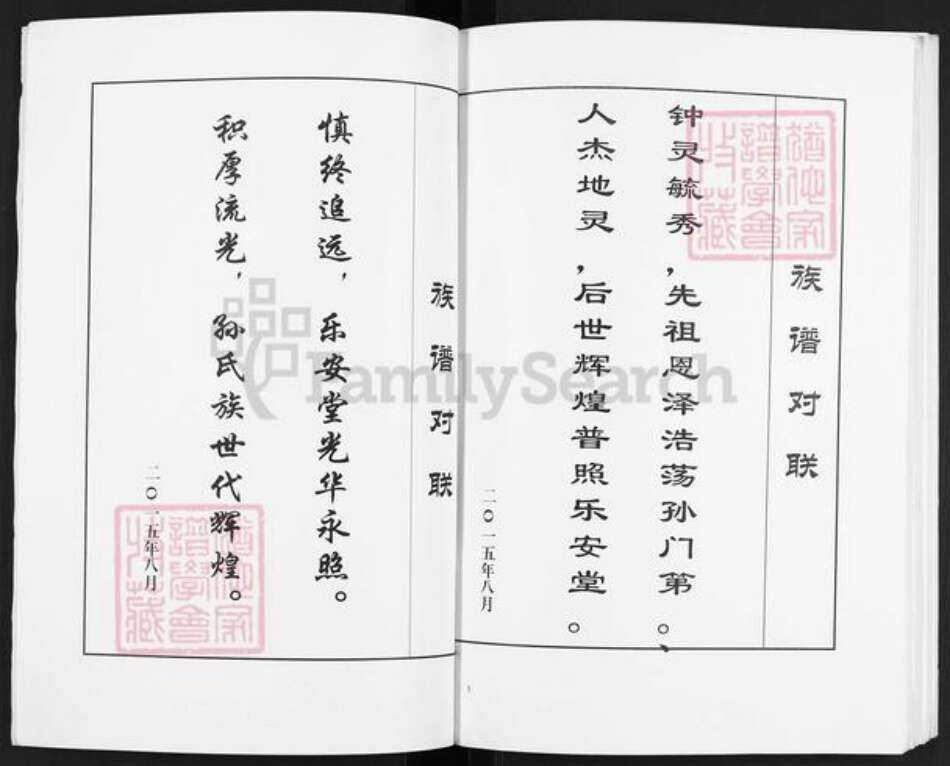 族谱对联
钟灵毓秀,先祖恩泽浩荡孙门第。、
人杰地灵,后世辉煌普照乐安堂。
二〇一五年八月
族谱对联
慎终追远,乐安堂光华永照。
积厚流光,孙氏族世代辉煌。
二〇一五年八月
猶他家
譜學會
收藏
猶他家
譜學會
收藏
FamilySearch